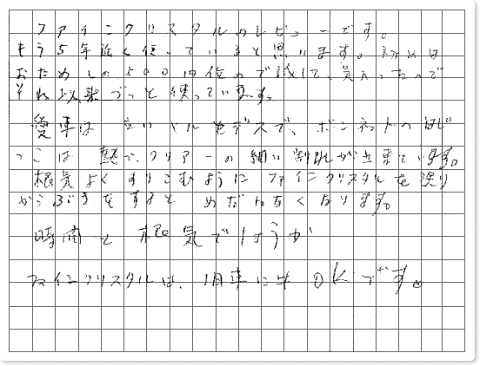 ファインクリスタルのレビューです。
もう5年近く使っていると思います。初めは
おためしの500円位ので試して、気に入ったので
それ以来ずっと使っています。
愛車は古いベンツで、ボンネットの
は熱で、クリアーの細い割れが出来ています。
根気よくすりこむようにファインクリスタルを塗り
からぶきをすると めだたなくなります。
時間と根気でしょうか
ファインクリスタルは、旧車にも OKです。